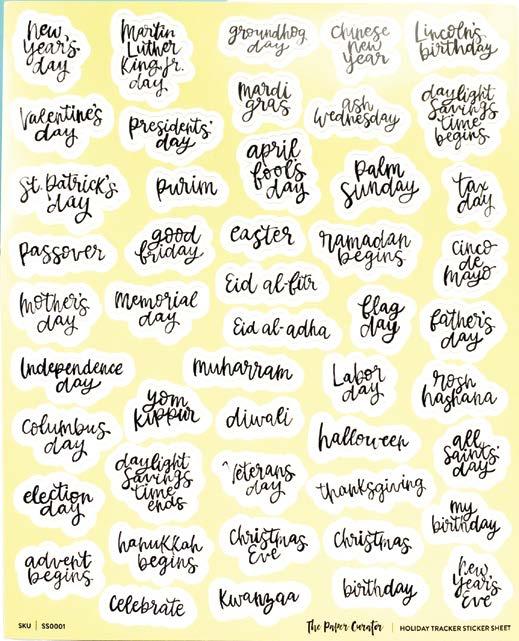 new
year's
day
Martin
Luther
King Jr.
day
groundhog
day
chinese
new
year
Lincoln's
birthday
valentine's
day
presidents'
day
mardi
gras
ash
wednesday
daylight
savings
time
begins
St. Patrick's
day
purim
april
fool's
day
palm
sunday
tax
day
passover
good
friday
easter
ramadan
begins
cinco
de
mayo
mother's
day
Memorial
day
Eid al-fitr
Eid al-adha
flag
day
father's
day
Independence
day
muharram
Labor
day
rosh
hashana
columbus
day
yom
kippur
diwali
halloween
all
saints'
day
election
day
daylight
savings
time
ends
veterans
day
thanksgiving
my
birthday
advent
begins
hanukkah
begins
christmas
Eve
christmas
new
year's
Eve
celebrate
kwanzaa
birthday
SKU | SS0001
The Paper Curator | HOLIDAY TRACKER STICKER SHEET